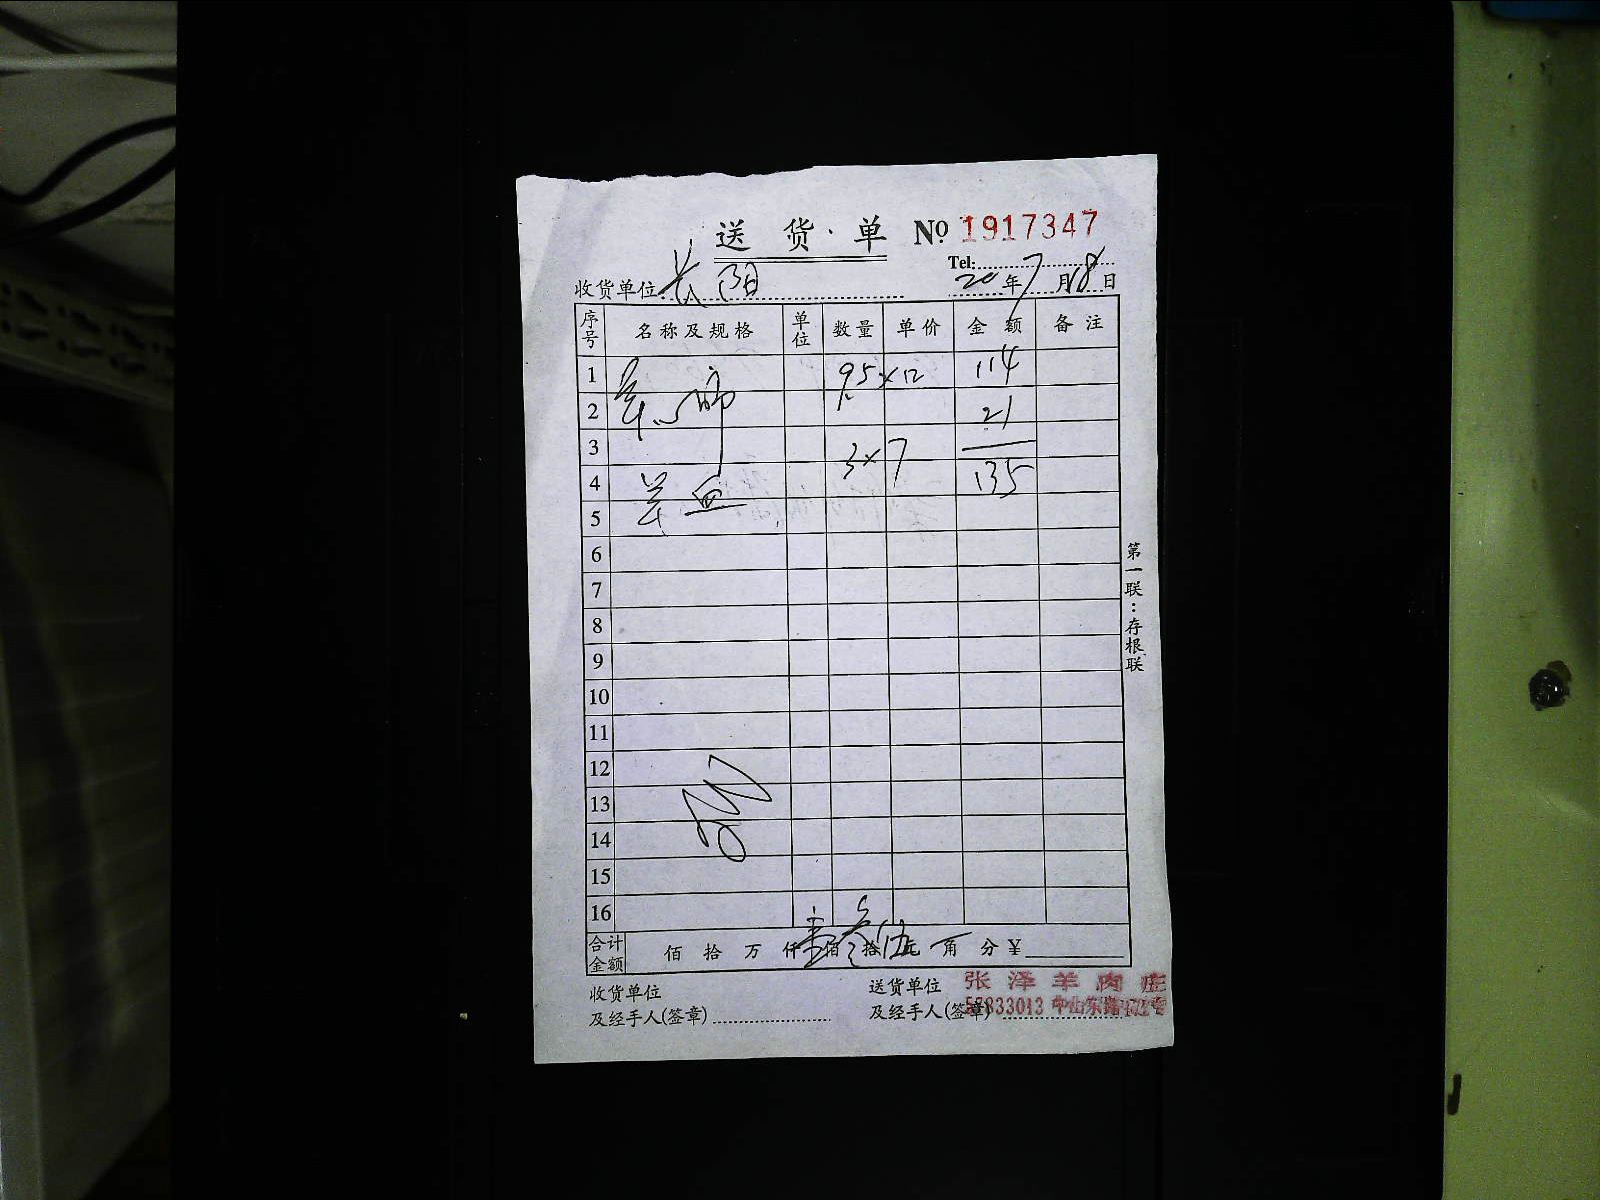 送货单 № 1917347
Tel:
收货单位: 长阳 20年7月18日
序号 名称及规格 单位 数量 单价 金额 备注
1 95×12 114
2 21
3 3×7
4 羊血 135
5
6
7
8
9
10
11
12
13
14
15
16
合计金额 佰 拾 万 仟 壹佰 叁拾 伍元 角 分 ¥
收货单位 送货单位 张泽羊肉庄
及经手人(签章) 及经手人(签章) 57833013
第一联:存根联